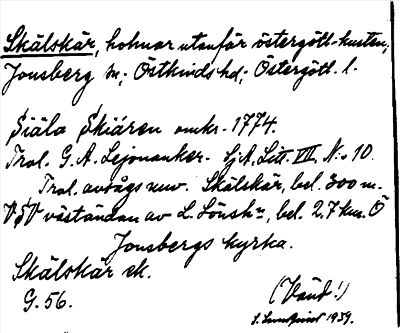 Skälskär, holmar utanför östergötl-kusten,
Jonsberg sn; Östkinds hd; Östergötl. l.
Siäla Skiären omkr. 1774.
Trol. G. A. Lejonanker. SjA. Litt. VIII N:o 10.
Trol. avsågs nuv. Skälskär, bel. 300 m.
VSV väständan av L. Lönsk-, bel. 2,7 km. Ö
Jonsbergs kyrka.
Skälskär ek.
G. 56.
(Vänd!)
1939.